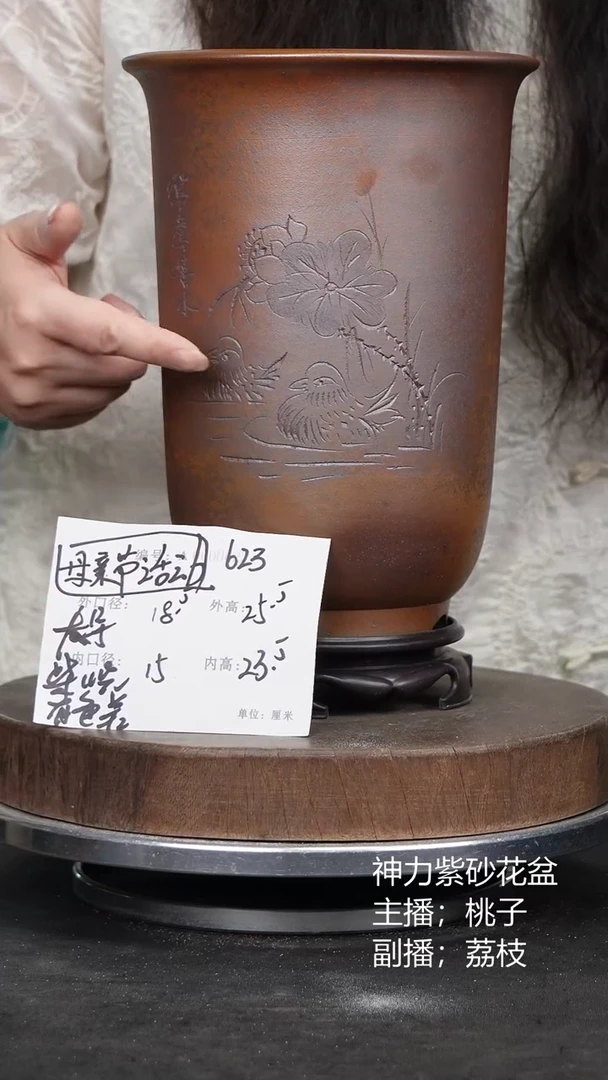 编号: 623
母亲节活动
外口径: 18.5 外高: 25.5
大号
内口径: 15 内高: 23.5
柴烧
有色差
单位: 厘米
神力紫砂花盆
主播；桃子
副播；荔枝